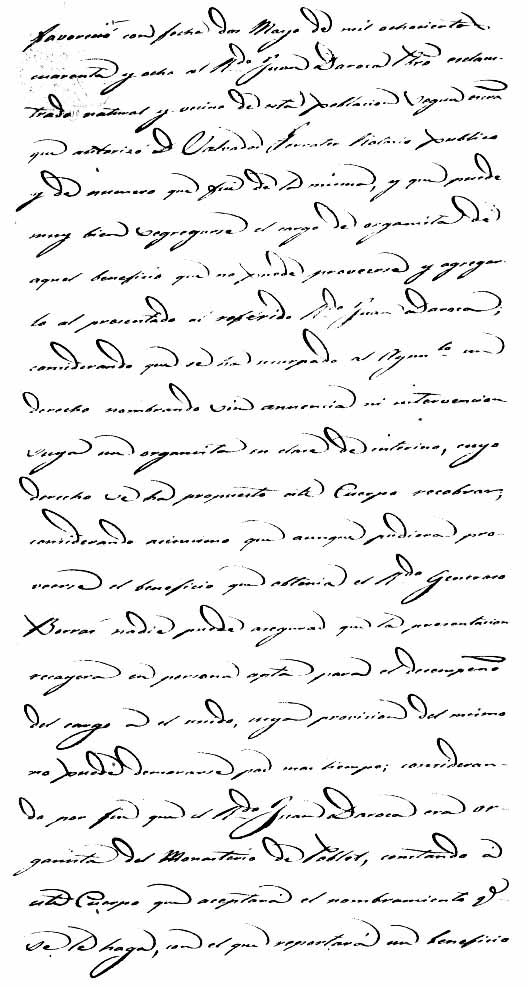 favoreció con fecha dos Mayo de mil ochocientos
cuarenta y ocho al Rdo Juan Daroca Pbro esclaus-
trado natural y vecino de esta poblacion segun escra
que autorizó D. Salvador Ferrater Notario publico
y de numero que fué de la misma, y que puede
muy bien segregarse el cargo de organista de
aquel beneficio que no puede proveerse y agregar-
lo al presentado al referido Rdo Juan Daroca;
considerando que se ha usurpado al Ayunto un
derecho nombrando sin anuencia ni intervencion
suya un organista en clase de interino, cuyo
derecho se ha propuesto este Cuerpo recobrar;
considerando asimismo que aunque pudiera pro-
veerse el beneficio que obtenia el Rdo Generoso
Borras nadie puede asegurar que la presentacion
recayera en persona apta para el desempeño
del cargo a el unido, cuya provision del mismo
no puede demorarse por mas tiempo; consideran-
do por fin que el Rdo Juan Daroca era or-
ganista del Monasterio de Poblet, constando á
este Cuerpo que aceptará el nombramiento q̃
se le haga, con el que reportará un beneficio